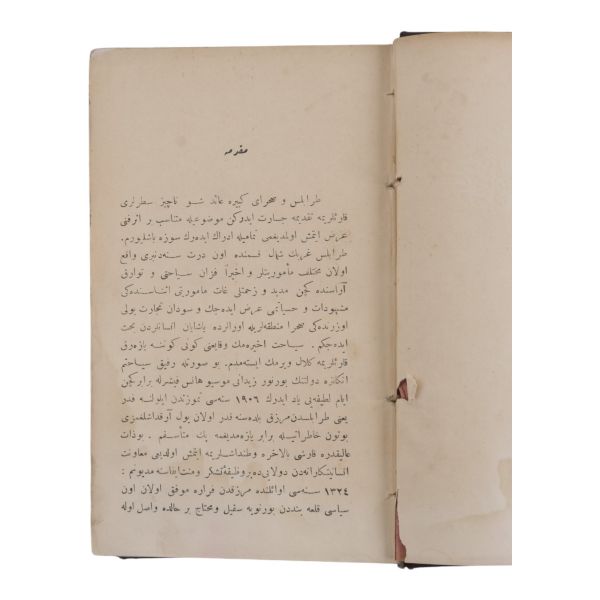 مقدمه
طرابلس و صحرای كبیره عائد شو ناچیز سطرلری
قارئلریمه تقدیمه جسارت ایدركن موضوعیله متناسب بر اثر فنی
عرض ایتمش اولمدیغمی تمامیله ادراك ایده رك سوزه باشلیورم.
طرابلس غربك شمال قسمنده اون درت سنه دنبری واقع
اولان مختلف مأموریتلر و اخیراً فزان سیاحتی و توارق
آراسنده كچن مدید و زحمتلی غات مأموریتی اثناسنده كی
مشهودات و حسیاتمی عرض ایده جك و سودان تجارت یولی
اوزرنده كی صحرا منطقه لریله اورالرده یاشایان انسانلردن بحث
ایده جكم . سیاحت اخیره مك وقایعنی كونی كوننه یازه رق
قارئلریمه كلال ویرمك ایسته مدم. بو صورتله رفیق سیاحتم
انكلتره دولتنك بورنور زیدانی موسیو هانس فیشرله برابر كچن
ایام لطیفه یی یاد ایدرك ١٩٠٦ سنه سی تموزندن ایلوله قدر
یعنی طرابلسدن مرزق بلده سنه قدر اولان یول آرقداشلغمزی
بوتون خاطراتیله برابر یازه مدیغمه پك متأسفم . بو ذات
عالیقدره قارشی بالاخره وطنداشلریمه ایتمش اولدیی معاونت
انسانیتكارانه دن دولایی ده بر وظیفۀ تشكر و منت ایفاسنه مدیونم :
١٣٢٤ سنه سی اوائلنده مرزقدن فراره موفق اولان اون
سیاسی قلعه بنددن بورنویه سفیل و محتاج بر حالده واصل اوله